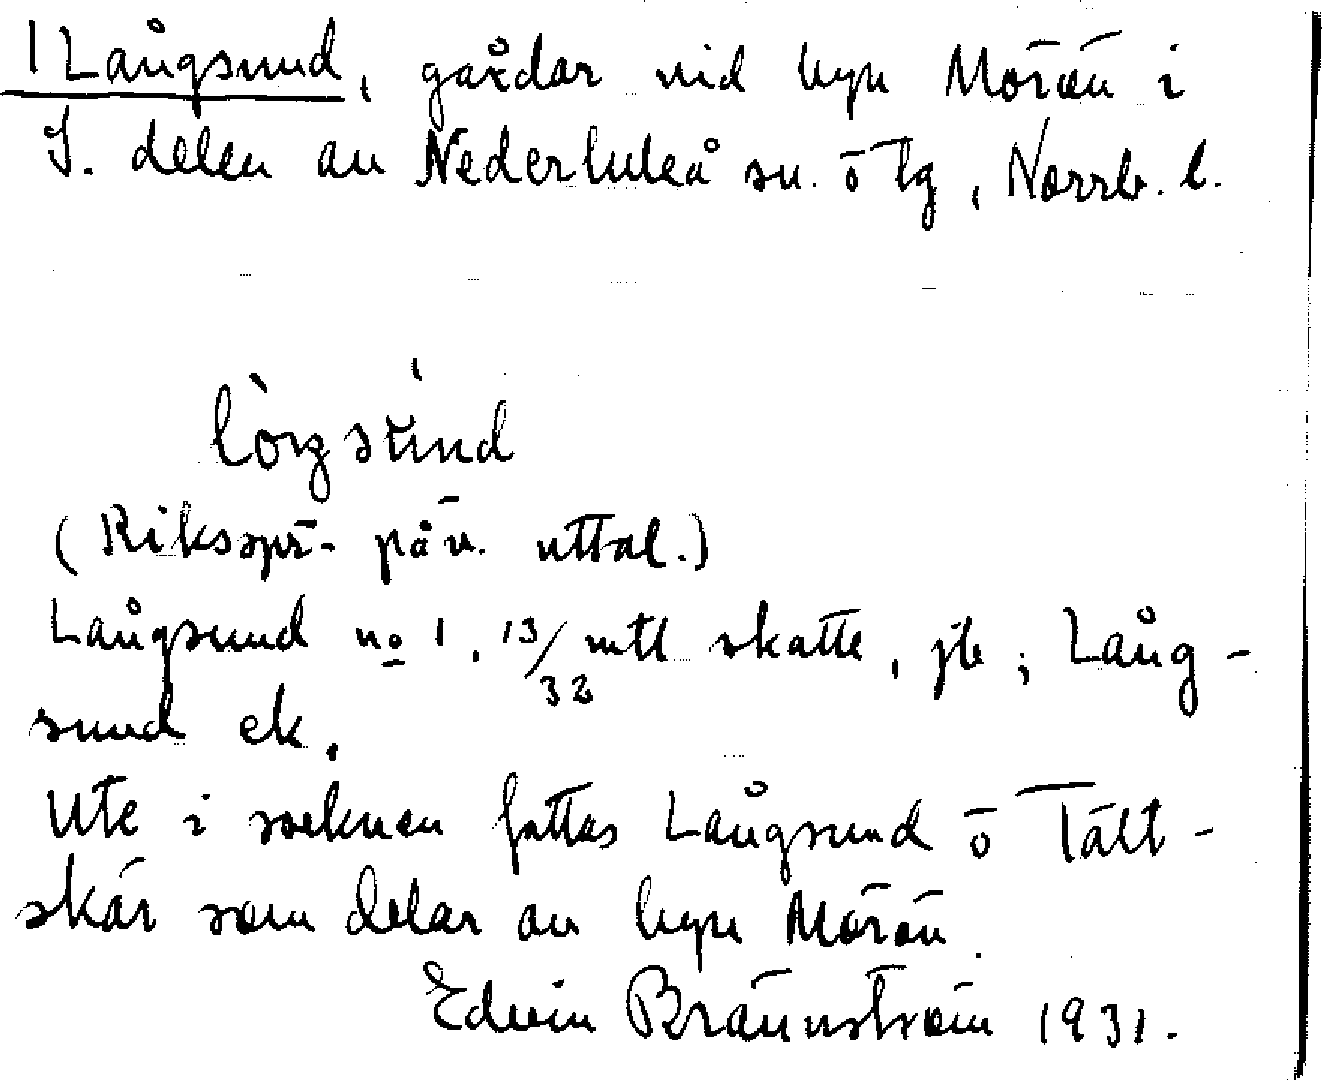 1 Långsund, gårdar vid byn Mörön i
S. delen av Nederluleå sn. ö tg, Norrb. l.
(Riksspr- påv. uttal.)
Långsund no 1, 13/32 mtl skatte, jb; Lång-
sund ek.
Ute i socknen fattas Långsund ö Tält-
skär som delar av byn Mörön.
Edvin Brännström 1931.